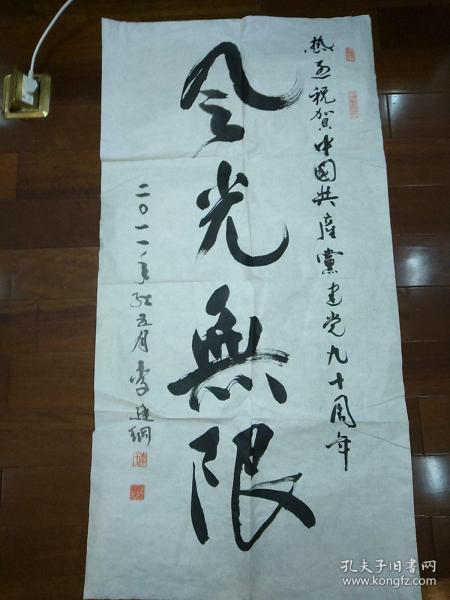 热烈祝賀中國共產黨建党九十周年
令光無限
二〇一一年红五月 李
孔夫子旧书网
www.kongfz.com